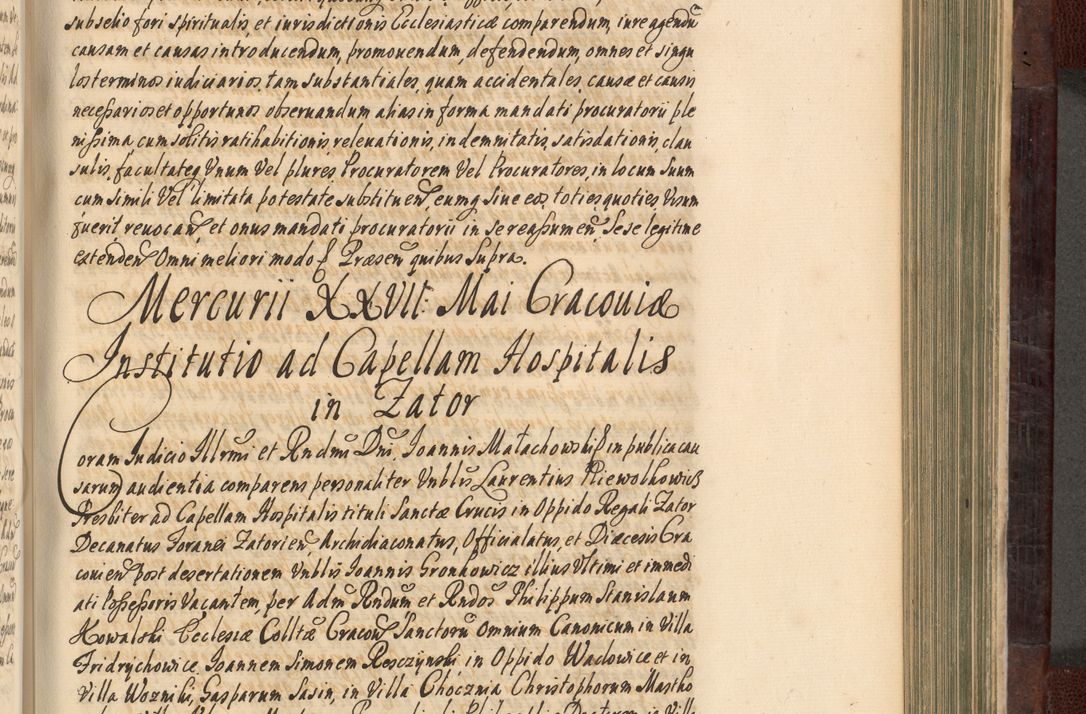 subselio fori spiritualis et iurisdictionis Ecclesiasticæ comparendum, iure agendũ
causam et causas introducendum, promouendum, defendendum, omnes et singu
los terminos iudiciarios, tam substantiales, quam accidentales, causæ et causis
necessarios et opportunos obseruandum alias in forma mandati procuratorii ple
nissima, cum solitis ratihabitionis, releuationis, indemnitatis, satisdationis, clau
sulis, facultateq Vnum Vel plures Procuratorem Vel Procuratores, in locum Suum
cum simili Vel limitata potestate substituen, eumq siue eos, toties quoties Visum
fuerit reuocan, et onus mandati procuratorii in se reassumen, Sese legitime
extenden Omni meliori modo Præsen quibus Supra.
Mercurii XXVII: Mai Cracouiæ
Institutio ad Capellam Hospitalis
in Zator
Coram Iudicio Illrmi et Rndmi Dni, Ioannis Małachowski in publica cau
sarum audientia comparens personaliter Vnblis Laurentius Niewolkowicz
Presbiter ad Capellam Hospitalis tituli Sanctæ Crucis in Oppido Regali Zator
Decanatus Foranei Zatorien, Archidiaconatus, Officialatus, et Diæcesis Cra
couien post desertationem Vnblis Ioannis Gronkowicz illius Vltimi et immedi
ati Possessoris Vacantem, per Adm Rndum et Rndos Philippum Stanislaum
Kowalski Ecclesiæ Colltæ Cracou Sanctorũ Omnium Canonicum in Villa
Fridrychowice, Ioannem Simonem Resczynski in Oppido Wadowice et in
Villa Wozniki, Gasparum Sasin, in Villa Chocznia Christophorum Mastho